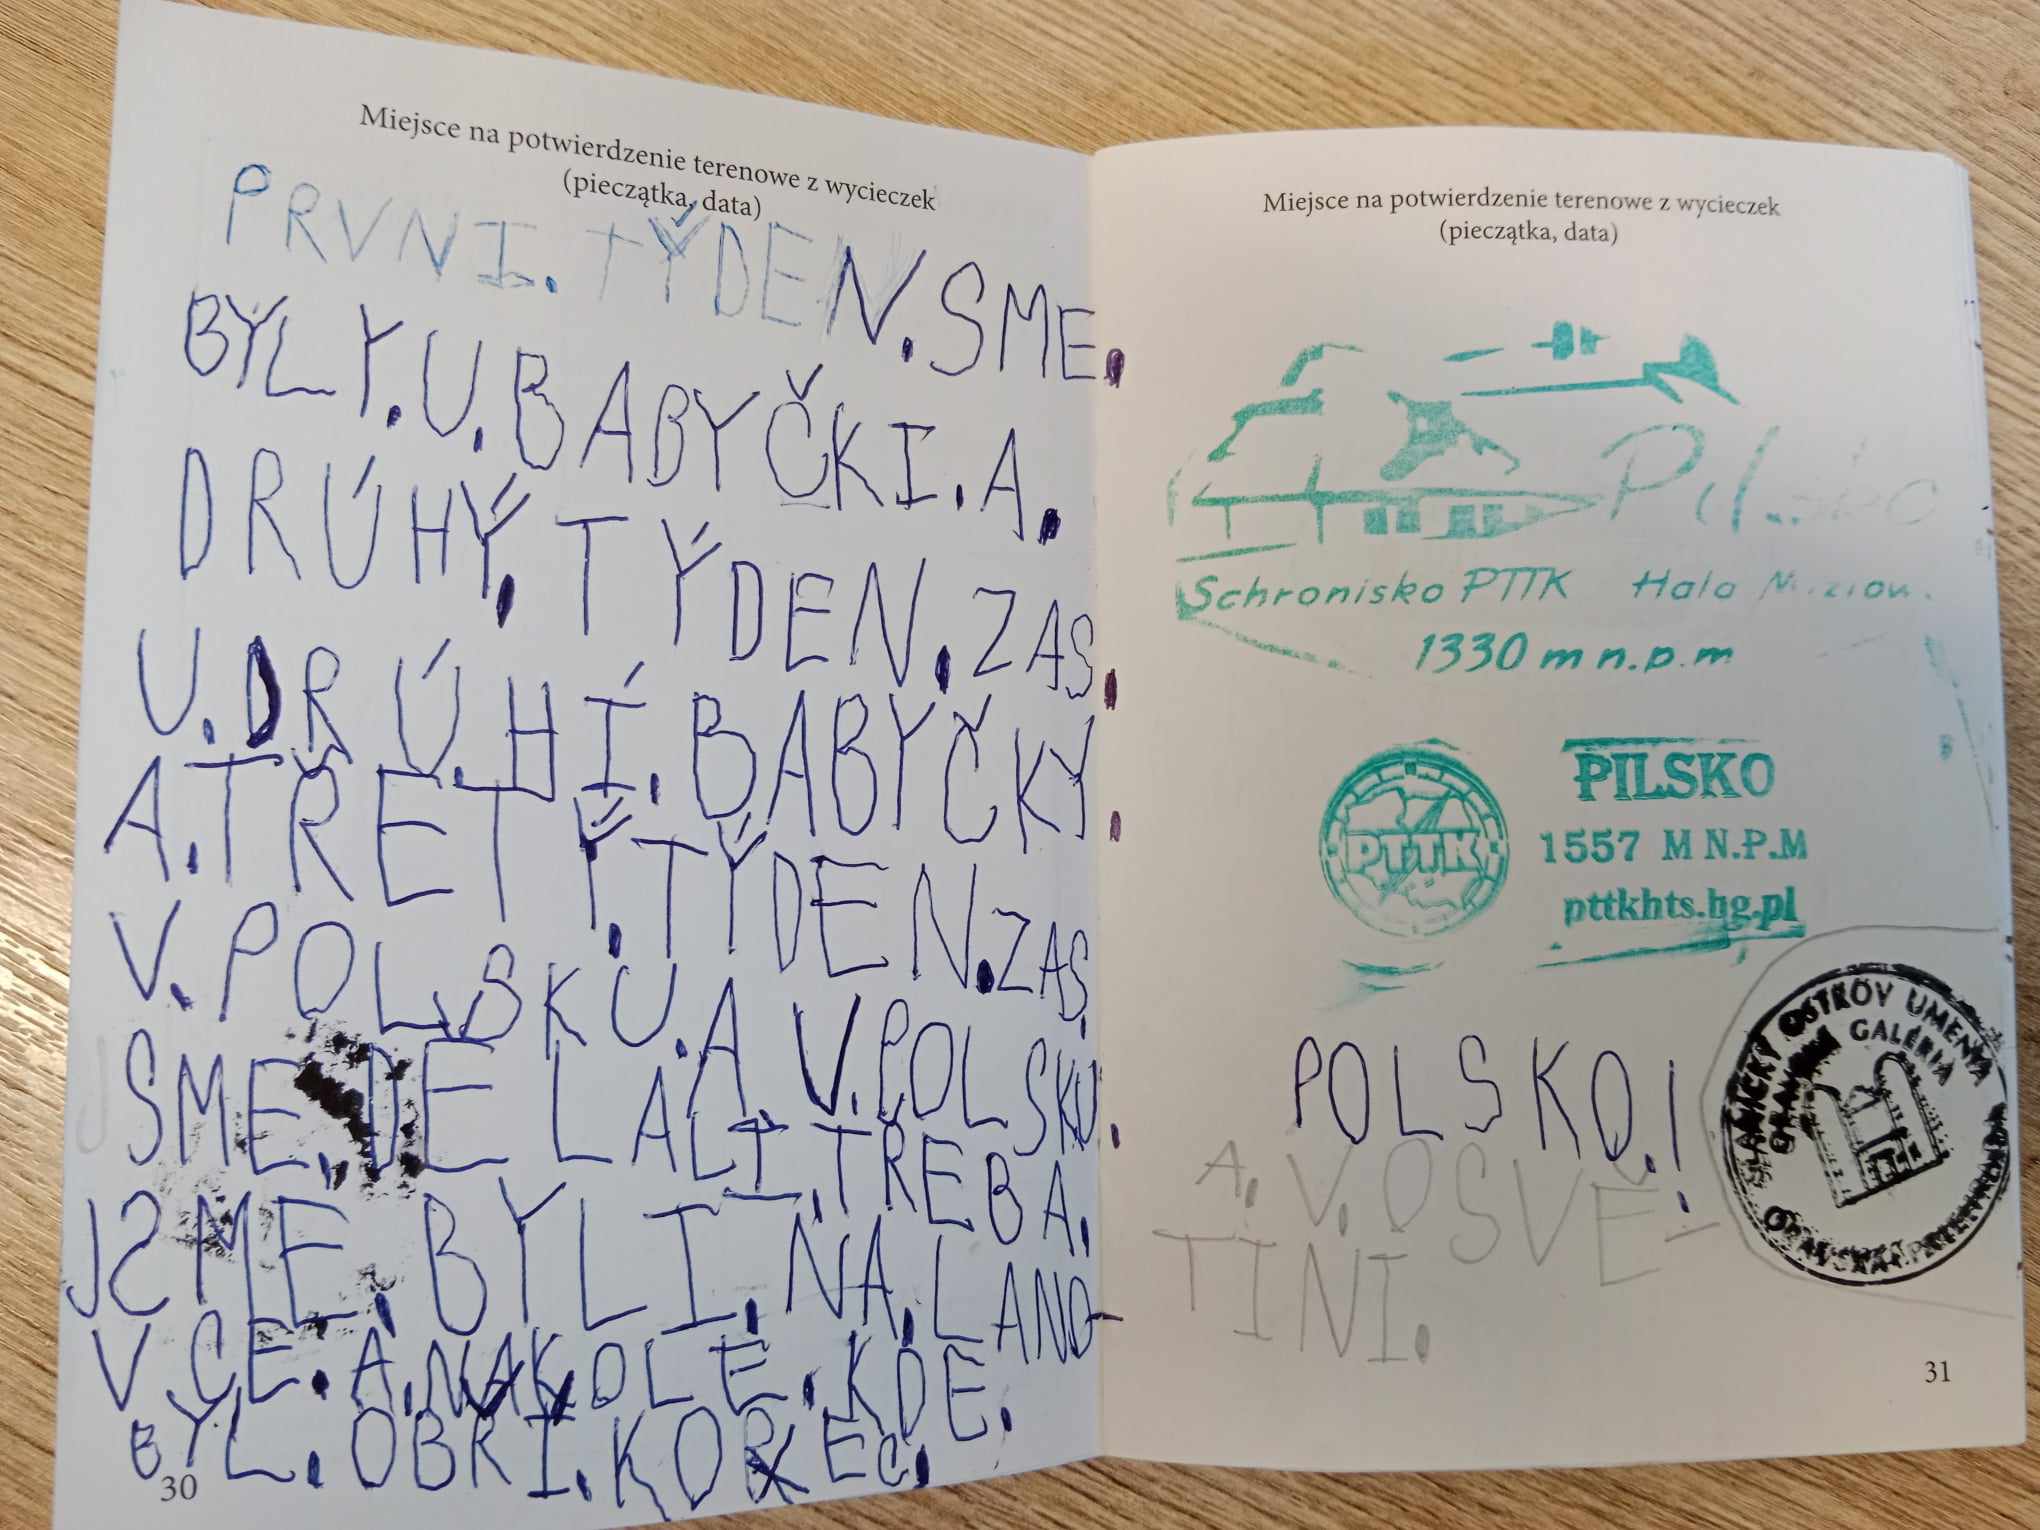 Miejsce na potwierdzenie terenowe z wycieczek
(pieczątka, data)
PRVNI. TÝDEN. SME.
BYLY. U. BABYČKI. A.
DRÚHÝ. TÝDEN. ZAS.
U. DRÚHÍ. BABYČKY
A. TŘETÝ. TÝDEN. ZAS.
V. POLSKU. A V. POLSKU.
SME. DELALI. TŘEBA.
JSME. BYLI. NA. LANO-
VCE. A. NAKOLE. KDE.
BYL. OBRI. KOPEC.
30
Miejsce na potwierdzenie terenowe z wycieczek
(pieczątka, data)
Pilsko
Schronisko PTTK Hala Miziow.
1330 m n.p.m
PTTK
PILSKO
1557 M N.P.M
pttkhts.bg.pl
SLANICKÝ OSTROV UMENIA
GALÉRIA
POLSKO.!
A. V. OSVĚ-
TINI.
31